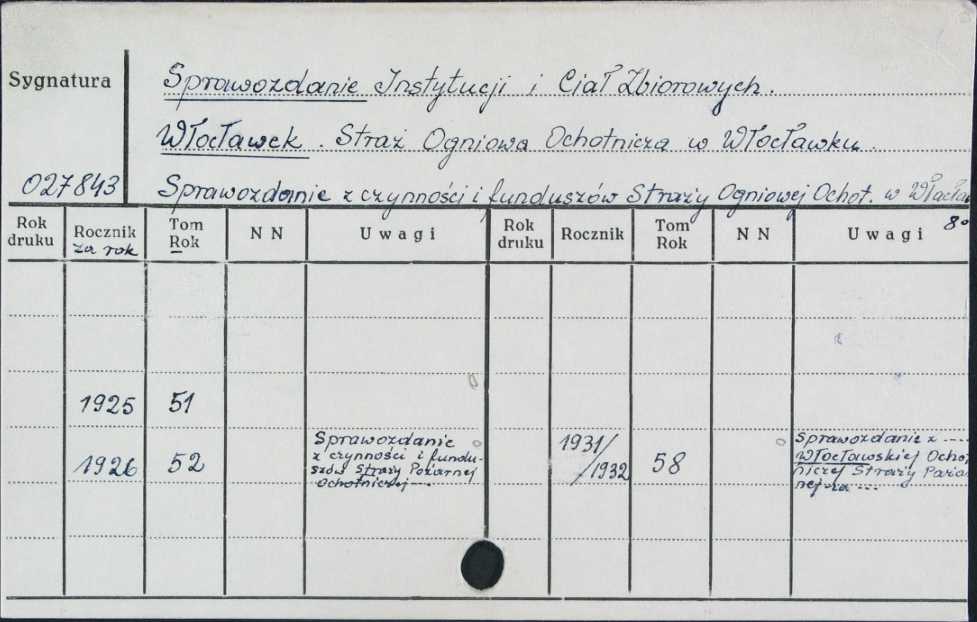 Sygnatura
Sprawozdanie Instytucji i Ciał Zbiorowych.
Włocławek. Straż Ogniowa Ochotnicza w Włocławku.
027843
Sprawozdanie z czynności i funduszów Straży Ogniowej Ochot. w Włocła
8o
Rok druku Rocznik za rok Tom Rok N N Uwagi Rok druku Rocznik Tom Rok N N Uwagi
1925 51
1926 52
Sprawozdanie
z czynności i fundu-
szów Straży Pożarnej
Ochotniczej —
1931/
/1932 58
Sprawozdanie z ----
Włocławskiej Ochot
niczej Straży Pożar
nej za ---